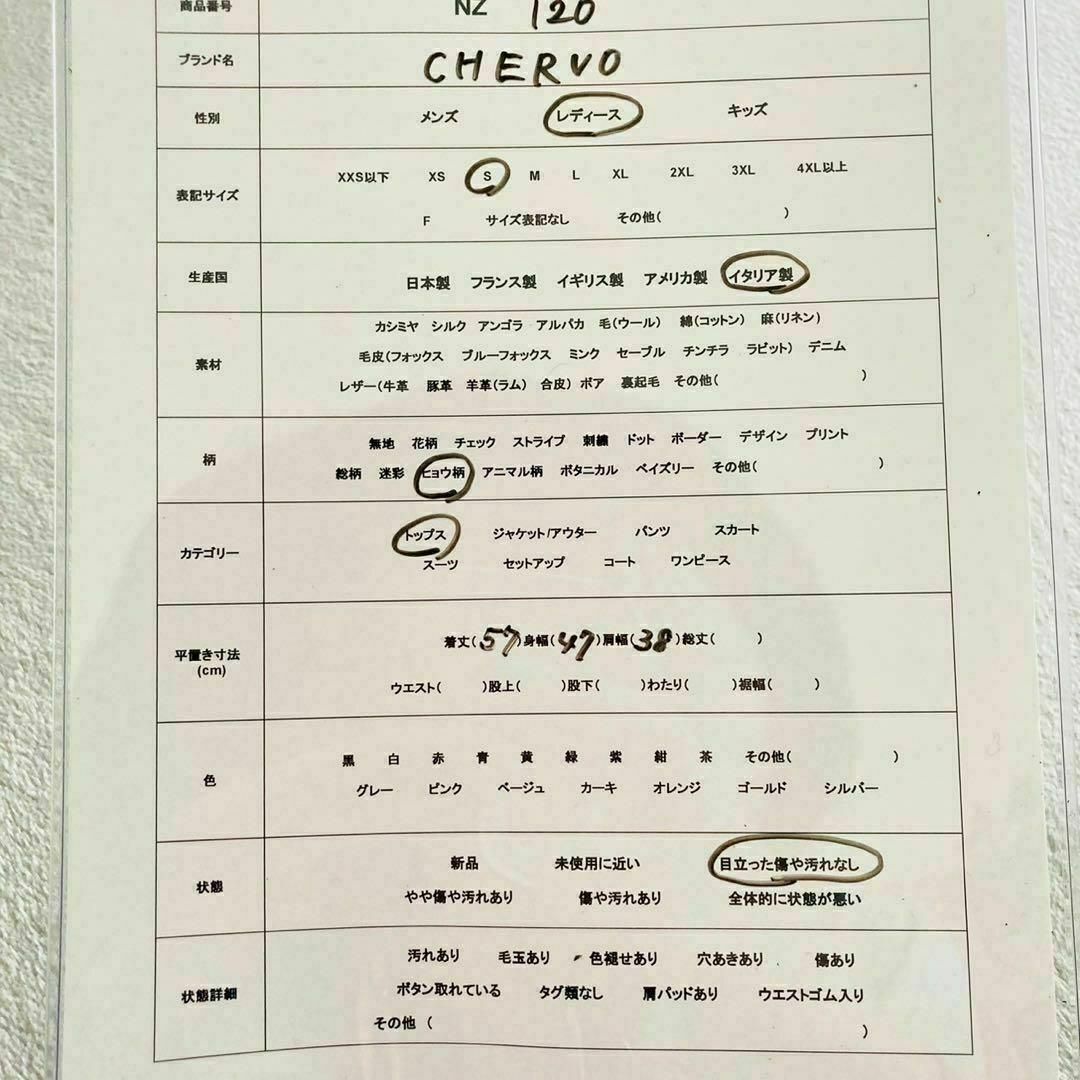 商品番号 NZ 120
ブランド名 CHERVO
性別 メンズ レディース キッズ
XXS以下 XS S M L XL 2XL 3XL 4XL以上
表記サイズ
F サイズ表記なし その他( )
生産国 日本製 フランス製 イギリス製 アメリカ製 イタリア製
カシミヤ シルク アンゴラ アルパカ 毛(ウール) 綿(コットン) 麻(リネン)
素材 毛皮(フォックス ブルーフォックス ミンク セーブル チンチラ ラビット) デニム
レザー(牛革 豚革 羊革(ラム) 合皮) ボア 裏起毛 その他( )
無地 花柄 チェック ストライプ 刺繍 ドット ボーダー デザイン プリント
柄
総柄 迷彩 ヒョウ柄 アニマル柄 ボタニカル ペイズリー その他( )
トップス ジャケット/アウター パンツ スカート
カテゴリー
スーツ セットアップ コート ワンピース
着丈(57)身幅(47)肩幅(38)総丈( )
平置き寸法
(cm)
ウエスト( )股上( )股下( )わたり( )裾幅( )
黒 白 赤 青 黄 緑 紫 紺 茶 その他( )
色
グレー ピンク ベージュ カーキ オレンジ ゴールド シルバー
新品 未使用に近い 目立った傷や汚れなし
状態
やや傷や汚れあり 傷や汚れあり 全体的に状態が悪い
汚れあり 毛玉あり 色褪せあり 穴あきあり 傷あり
状態詳細 ボタン取れている タグ類なし 肩パッドあり ウエストゴム入り
その他 ( )